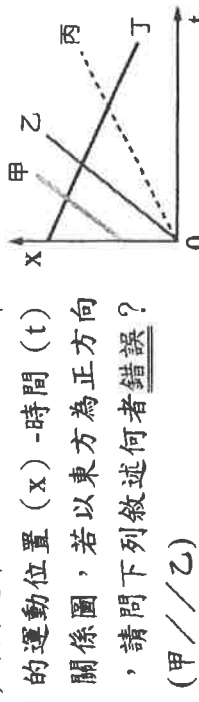 的運動位置(x)-時間(t)
關係圖，若以東方為正方向
，請問下列敘述何者錯誤？
(甲//乙)
x
甲
乙
丙
丁
0
t